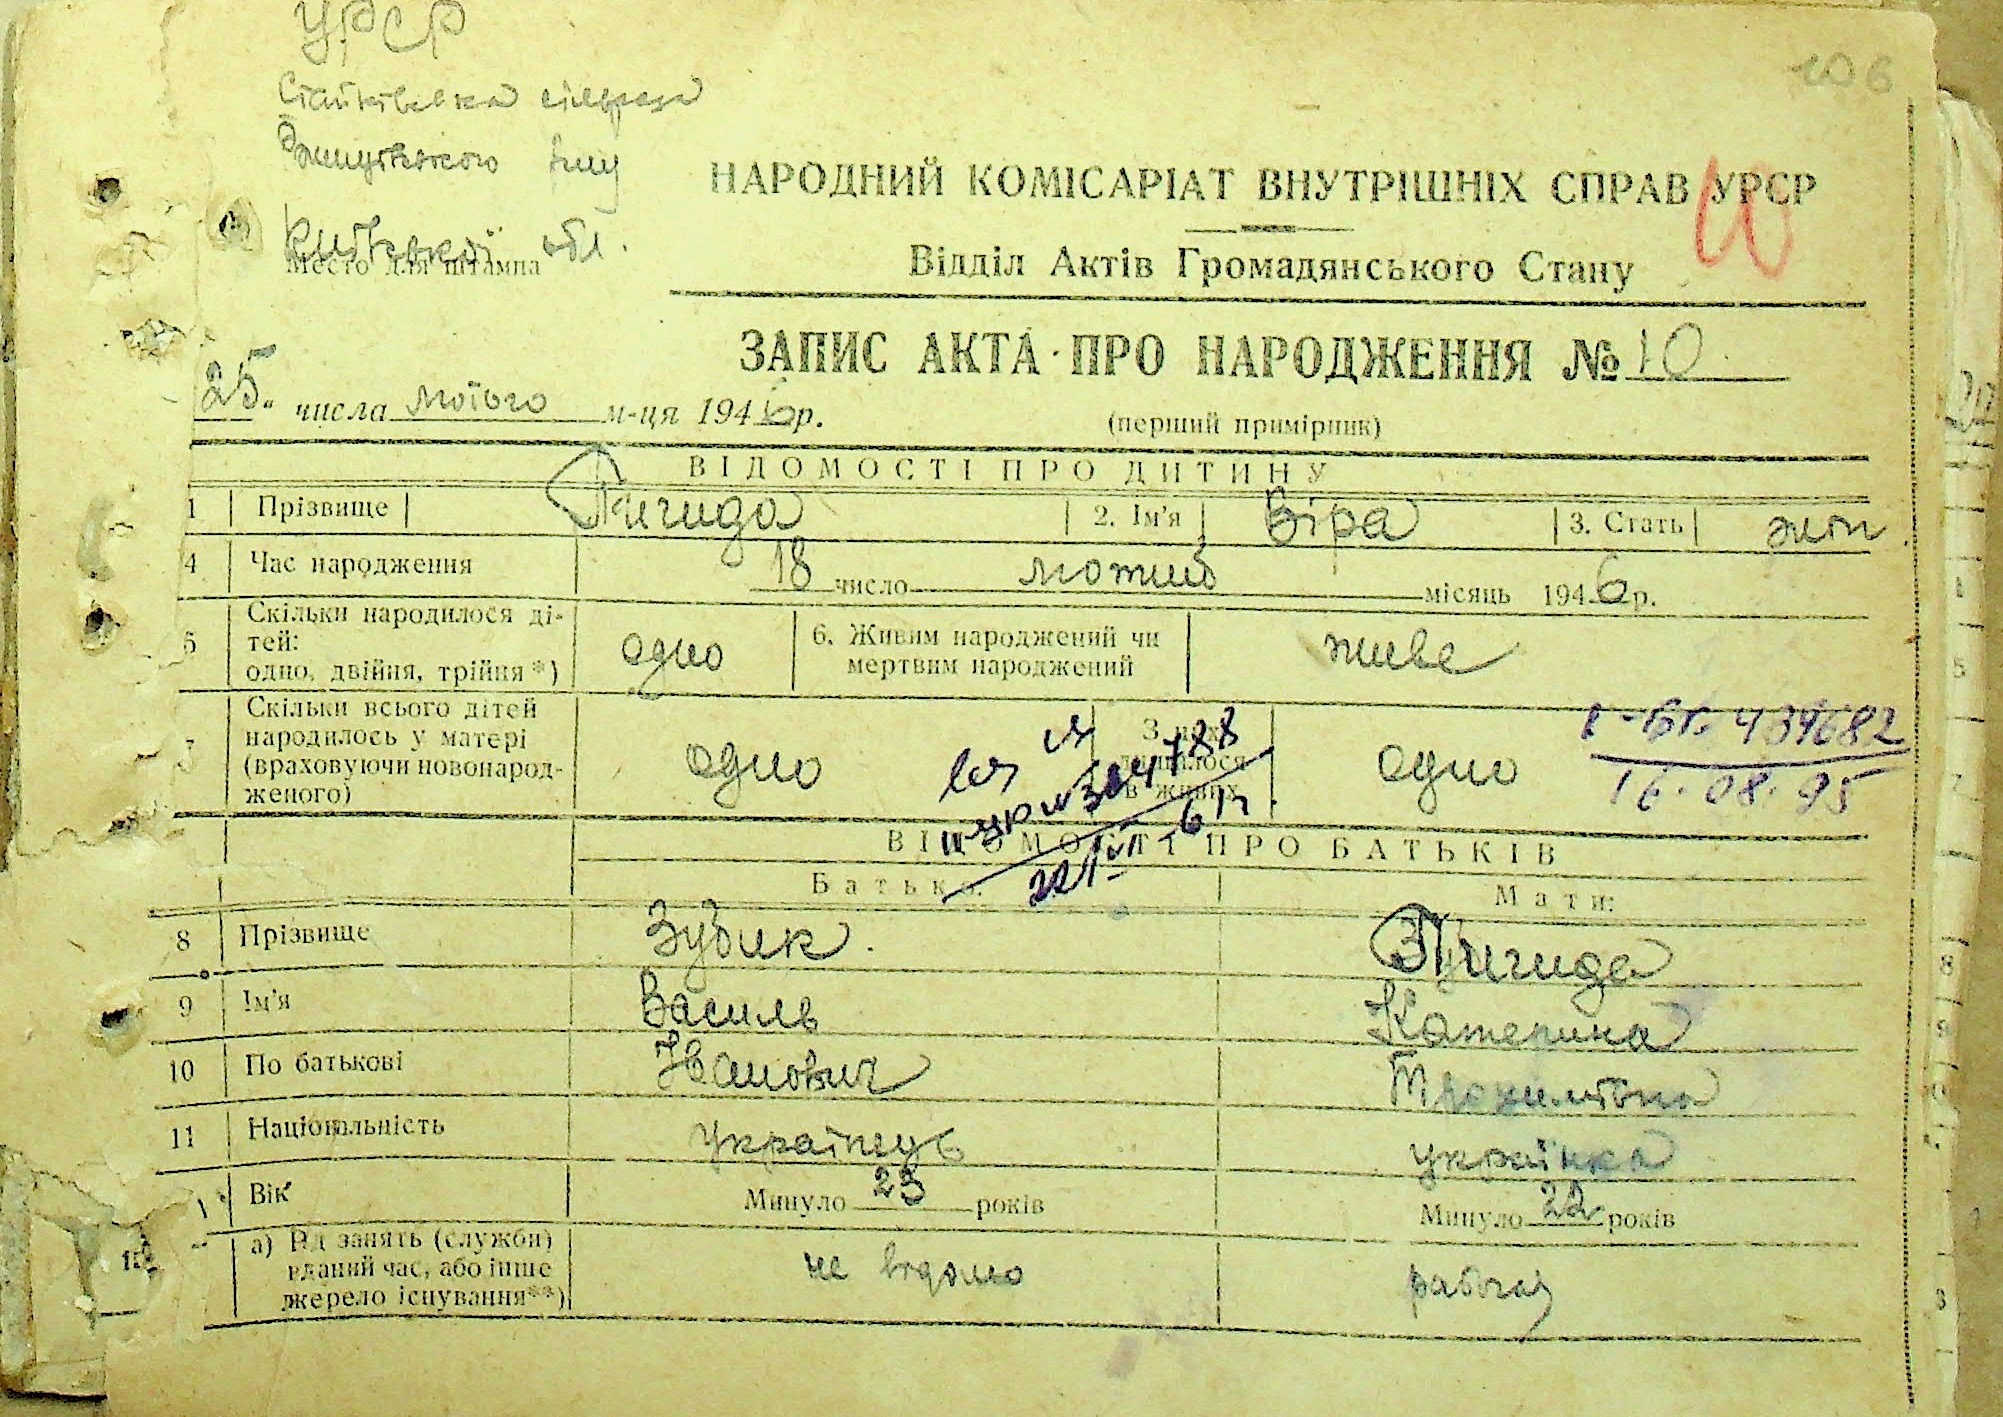 УРСР
106
сільрада
Київської обл.
Место для штампа
НАРОДНИЙ КОМІСАРІАТ ВНУТРІШНІХ СПРАВ УРСР
Відділ Актів Громадянського Стану
ЗАПИС АКТА ПРО НАРОДЖЕННЯ № 10
25 " числа лютого м-ця 1946 р.
(перший примірник)
ВІДОМОСТІ ПРО ДИТИНУ
1 Прізвище 2. Ім'я Віра 3. Стать жін
4 Час народження 18 число лютий місяць 1946 р.
5 Скільки народилося ді-
тей:
одно, двійня, трійня *) одно 6. Живим народжений чи
мертвим народжений живе
Скільки всього дітей
народилось у матері
(враховуючи новонарод-
женого) одно З них
лишилося
в живих одно
439682
16.08.95
ВІДОМОСТІ ПРО БАТЬКІВ
Батько: Мати:
8 Прізвище Зубик
9 Ім'я Василь Катерина
10 По батькові Іванович Трохимівна
11 Національність українець українка
Вік Минуло 23 років Минуло 22 років
а) Рід занять (служби)
в даний час, або інше
джерело існування**) не відомо